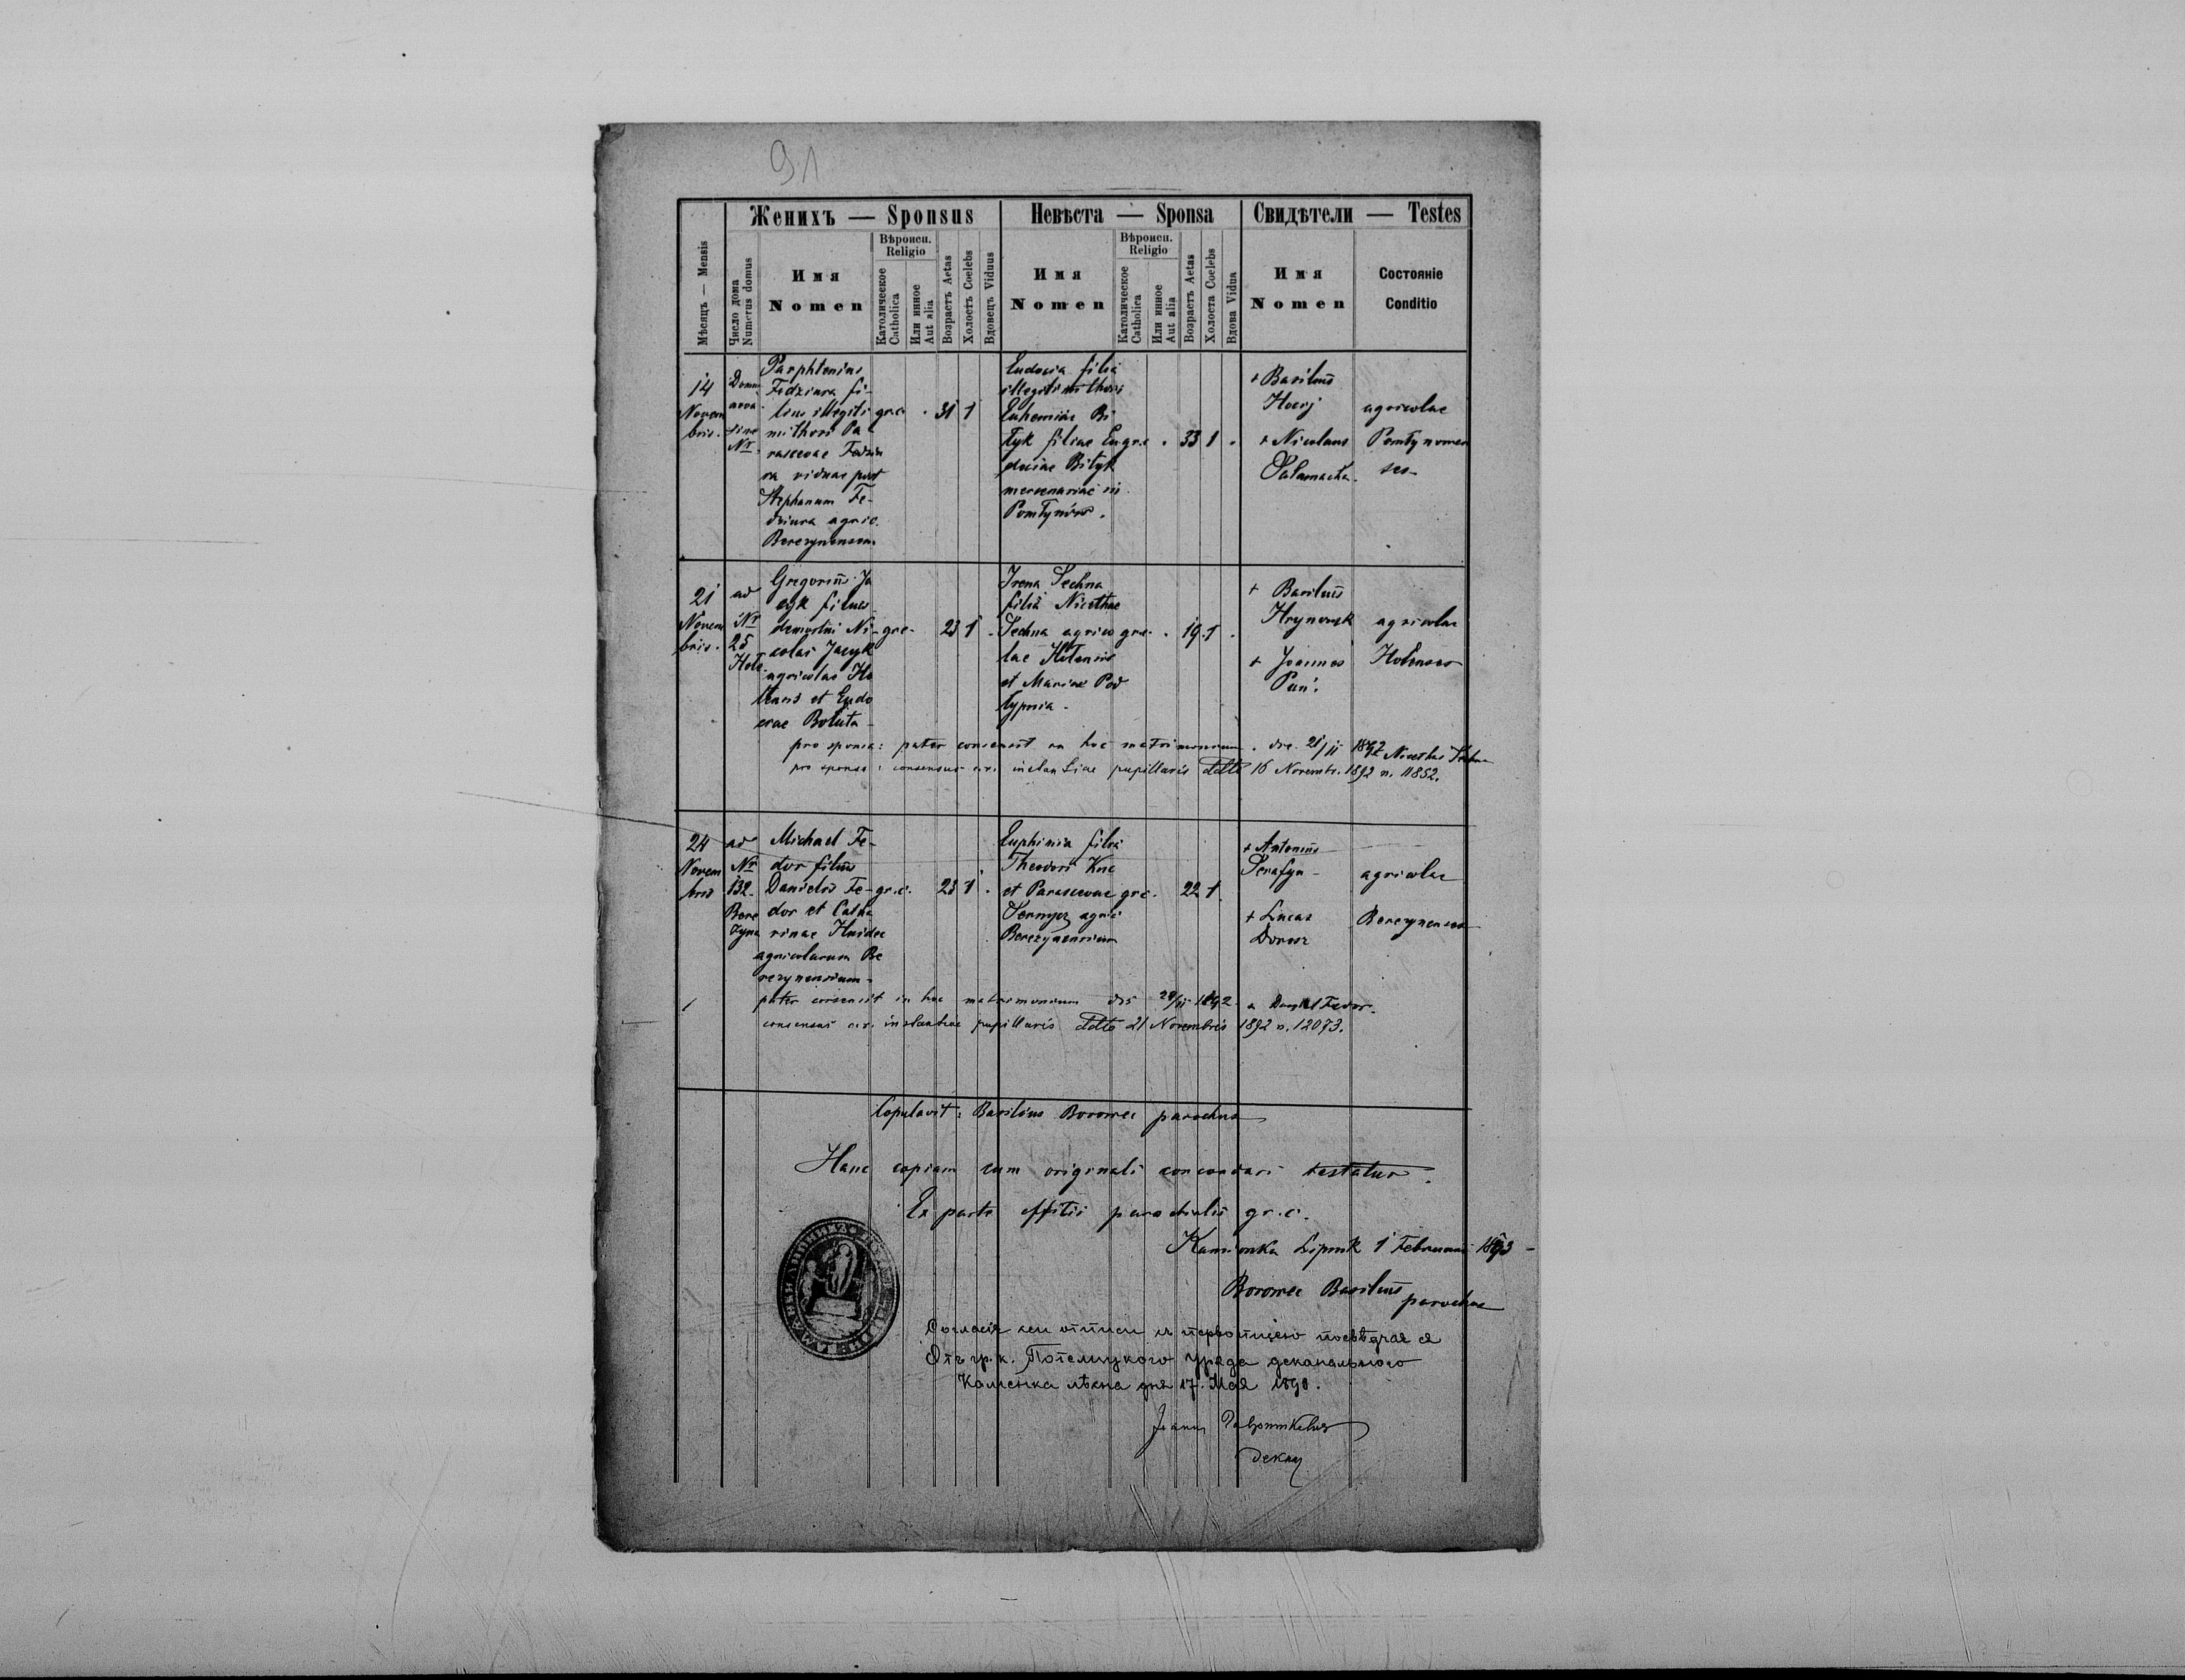 91
Женихъ — Sponsus
Невѣста — Sponsa
Свидѣтели — Testes
Мѣсяцъ — Mensis
Число дома
Numerus domus
Имя
Nomen
Вѣроисп.
Religio
Католическое
Catholica
Или инное
Aut alia
Возрастъ Aetas
Холостъ Coelebs
Вдовецъ Viduus
Имя
Nomen
Вѣроисп.
Religio
Католическое
Catholica
Или инное
Aut alia
Возрастъ Aetas
Холоста Coelebs
Вдова Vidua
Имя
Nomen
Состояніе
Conditio
14
Novem
bris.
Domus
nova
sine
Nr.
Parphtenius
Fedziura fi-
lius illegiti
mi thori Pa
rascevae Fedziu
ra viduae post
Stephanum Fe-
dziura agric.
Berezynensem
gr.c. 31 1
Eudocia filia
illegitimi thori
Euhemiae Bi
tyk filiae Eu
dociae Bityk
mercenariae in
Pomłynów.
gr.c. 33 1
+ Basilius
+ Nicolaus
Sałamacha.
agricolae
Pomłynowen
ses
21
Novem
bris.
ad
Nr
25
Hole
Gregorius Ja
cyk filius
demortui Ni-
colai Jacyk
agricolae Ho
lensis et Eudo
ciae Boluta
gr.c. 23 1
Irena Sechna
filia Nicethae
Sechna agrico
lae Holensis
et Mariae Pod
łypnia.
gr.c. 19 1
+ Basilius
Hrynowsk
+ Joannes
Pan.
agricolae
Holenses
pro sponsa: pater consensit in hoc matrimonium. die 21/11 1892 Nicethas Sechna
pro sponso: consensus c.r. instantiae pupillaris ddto 16 Novembr. 1892 n. 11852.
24
Novem
bris
ad
Nr
132
Bere
zyna
Michael Fe-
dor filius
Danielis Fe-
dor et Catha
rinae Hnidec
agricolarum Be
rezynensium
gr.c. 23 1
Euphimia filia
Theodori Kuc
et Parascevae
agric
Berezynensium
gr.c. 22 1
+ Antonius
Serafyn
+ Lucas
Dorosz
agricolae
Berezynenses
pater consensit in hoc matrimonium die 24/11 1892 Daniel Fedor.
consensus c.r. instantiae pupillaris ddto 21 Novembris 1892 n. 12073.
Copulavit: Basilius Borowec parochus
Hanc copiam cum originali concordari testatur.
Ex parte offitii parochialis gr.c.
Kamionka Lipnik 1 Februarii 1893
Borowec Basilius
parochus
Согласіе сеи отписи съ первописею посвѣдчае ся
Отъ гр.к. Потелицкого уряда деканального
Каменка лѣсна дня 17. Мая 1898.
декан